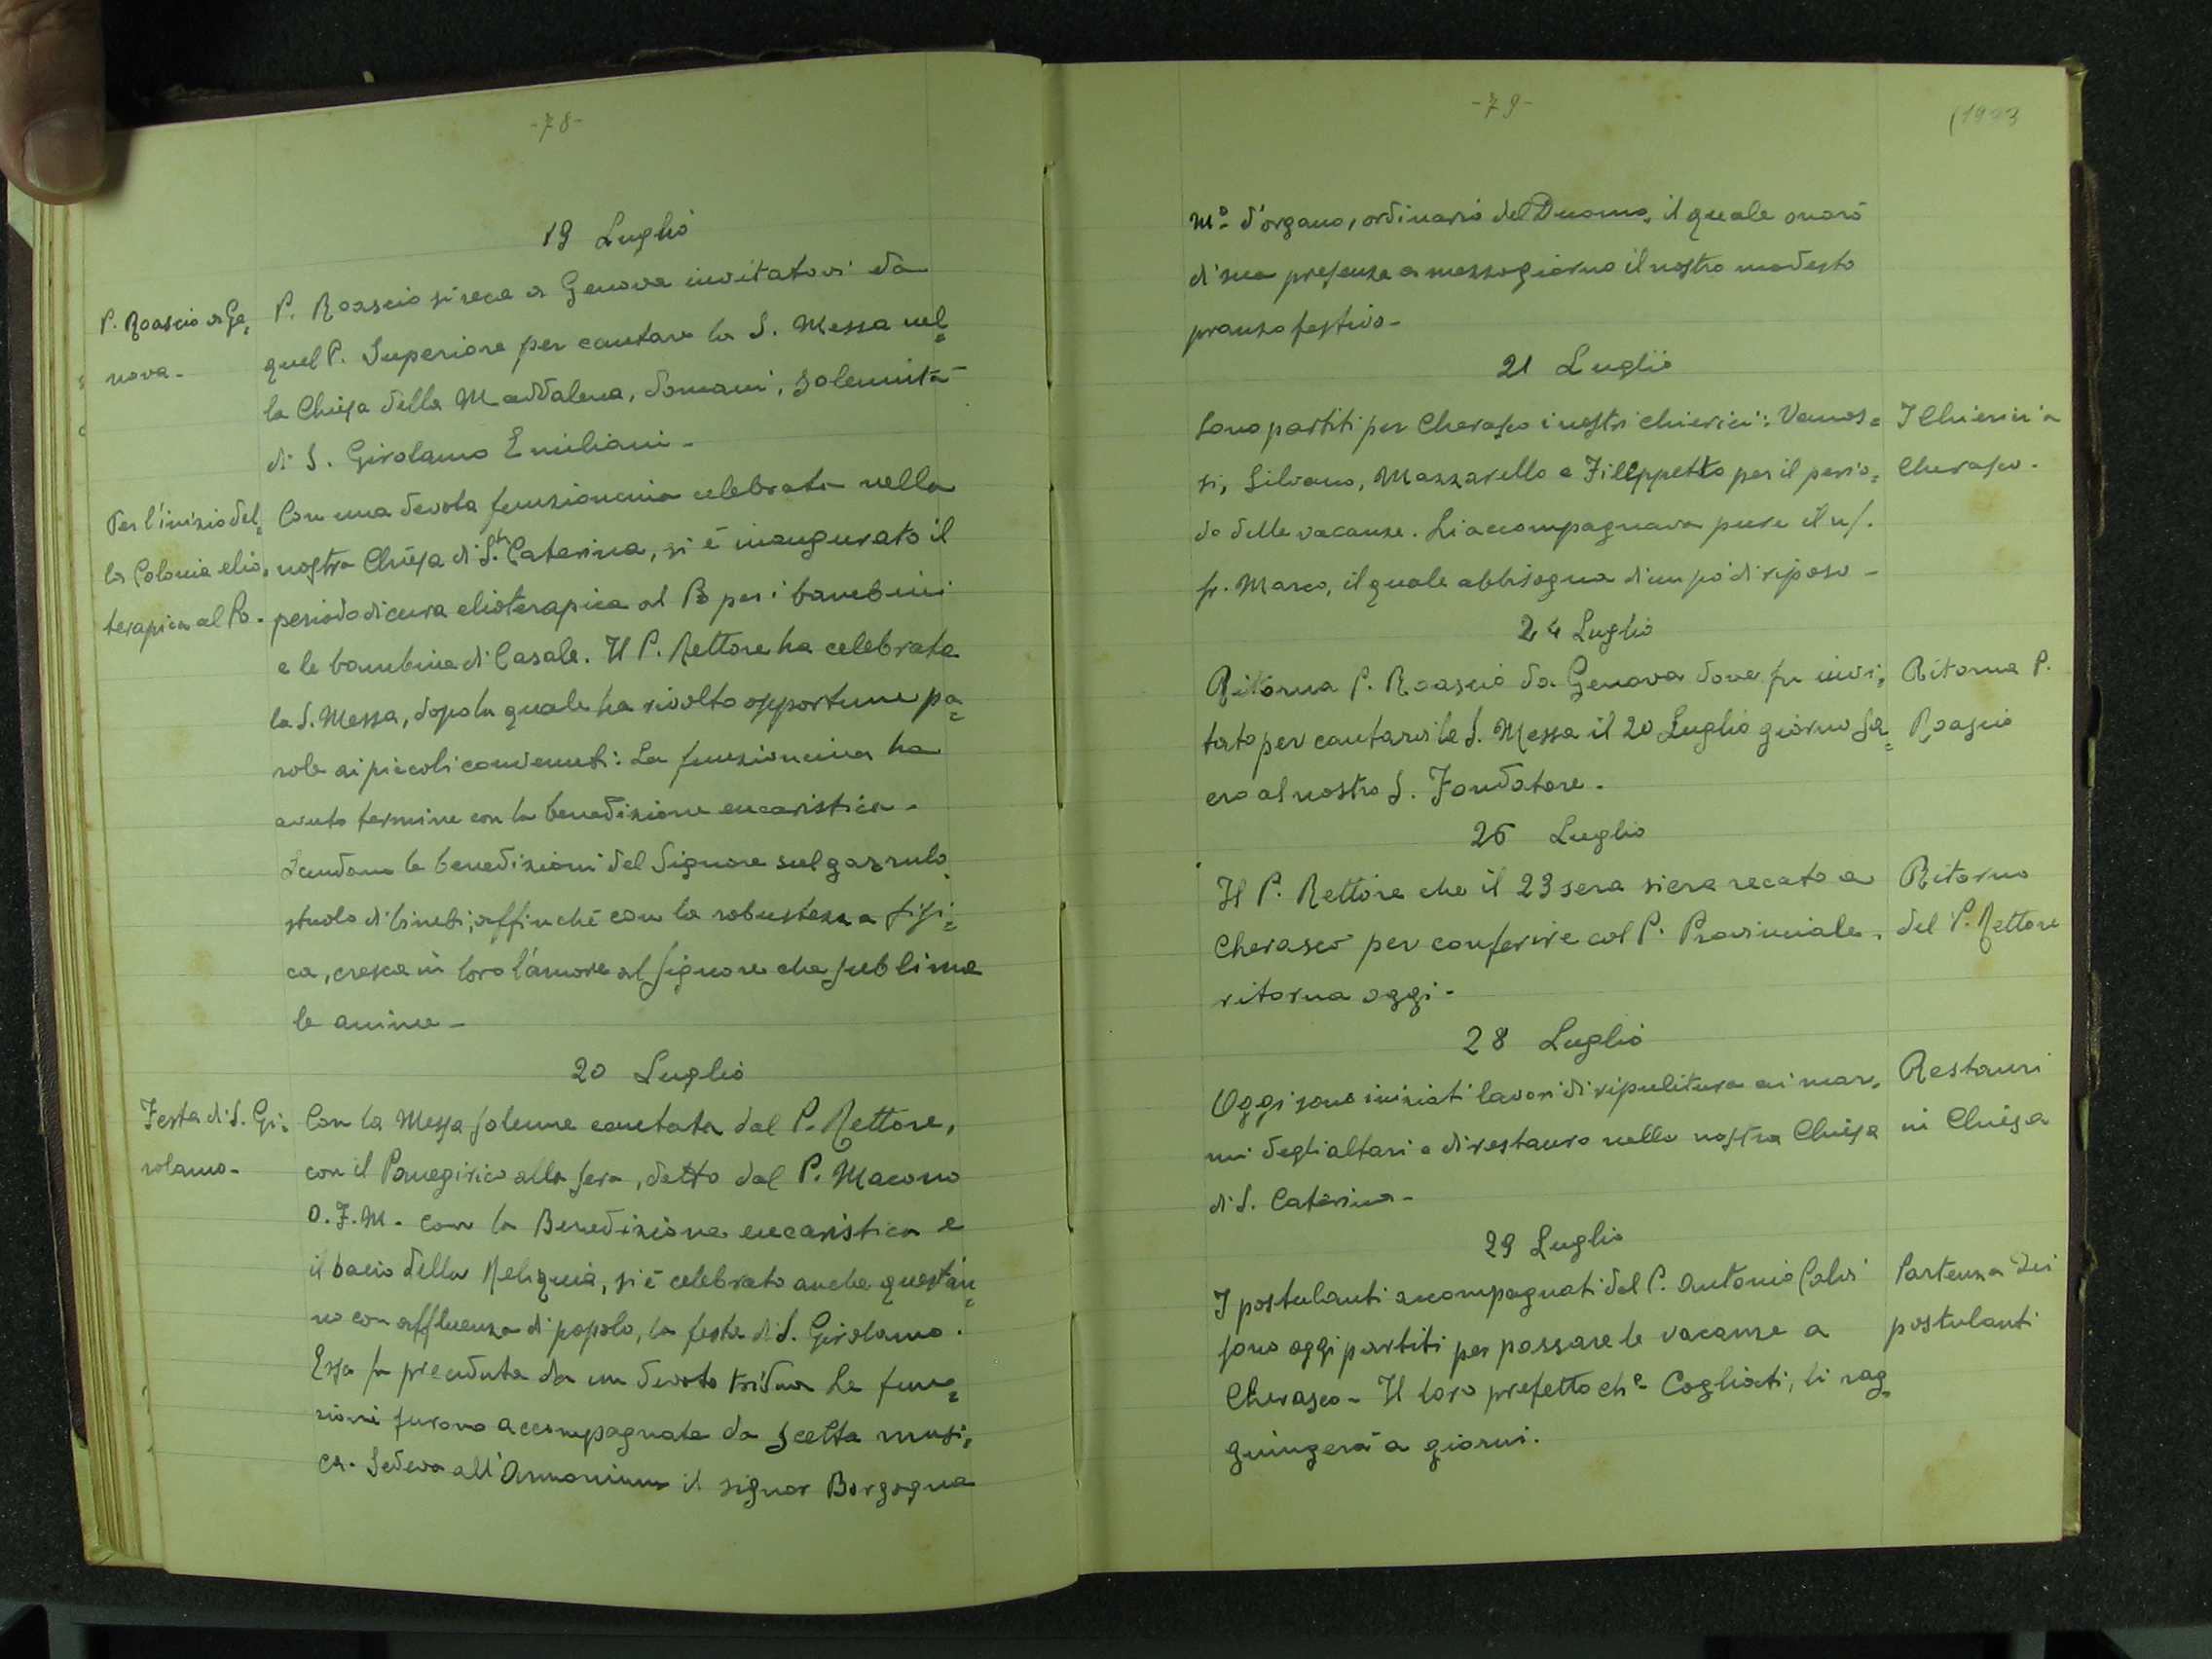 -78-
19 Luglio
P. Roascio a Ge=
nova-
P. Roascio si reca a Genova invitatovi da
quel P. Superiore per cantare la S. Messa nel=
la Chiesa della Maddalena, domani, solennità
di S. Girolamo Emiliani-
Per l'inizio del=
la Colonia elio=
terapica al Po.
Con una devota funzioncina celebrata nella
nostra Chiesa di S.ta Caterina, si è inaugurato il
periodo di cura elioterapica al Po per i bambini
e le bambine di Casale. Il P. Rettore ha celebrata
la S. Messa, dopo la quale ha rivolto opportune pa=
role ai piccoli convenuti: La funzioncina ha
avuto termine con la benedizione eucaristica-
Scendano le benedizioni del Signore sul garrulo
stuolo di bimbi, affinchè con la robustezza fisi=
ca, cresca in loro l'amore al Signore che sublima
le anime-
20 Luglio
Festa di S. Gi=
rolamo-
Con la Messa solenne cantata dal P. Rettore,
con il Panegirico alla sera, detto dal P. Macono
O.F.M. con la Benedizione eucaristica e
il bacio della Reliquia, si è celebrato anche quest'an=
no con affluenza di popolo, la festa di S. Girolamo.
Essa fu preceduta da un devoto triduo Le fun=
zioni furono accompagnate da scelta musi=
ca. Sedeva all'Armonium il signor Borgogna
-79-
(1933
Mo. d'organo, ordinario del Duomo, il quale onorò
di sua presenza a mezzogiorno il nostro modesto
pranzo festivo-
21 Luglio
Sono partiti per Cherasco i nostri chierici: Vanos=
si, Silvano, Mazzarello e Filippetto per il perio=
do delle vacanze. Li accompagnava pure il ns.
fr. Marco, il quale abbisogna di un po' di riposo-
I Chierici a
Cherasco.
24 Luglio
Ritorna P. Roascio da Genova dove fu invi=
tato per cantarvi la S. Messa il 20 Luglio giorno sa=
cro al nostro S. Fondatore.
Ritorna P.
Roascio
26 Luglio
Il P. Rettore che il 23 sera si era recato a
Cherasco per conferire col P. Provinciale,
ritorna oggi-
Ritorno
del P. Rettore
28 Luglio
Oggi sono iniziati lavori di ripulitura ai mar=
mi degli altari e di restauro nella nostra Chiesa
di S. Caterina-
Restauri
in Chiesa
29 Luglio
I postulanti accompagnati dal P. Antonio Calvi
sono oggi partiti per passare le vacanze a
Cherasco- Il loro prefetto ch.e Cogliati, li rag=
giungerà a giorni.
Partenza dei
postulanti